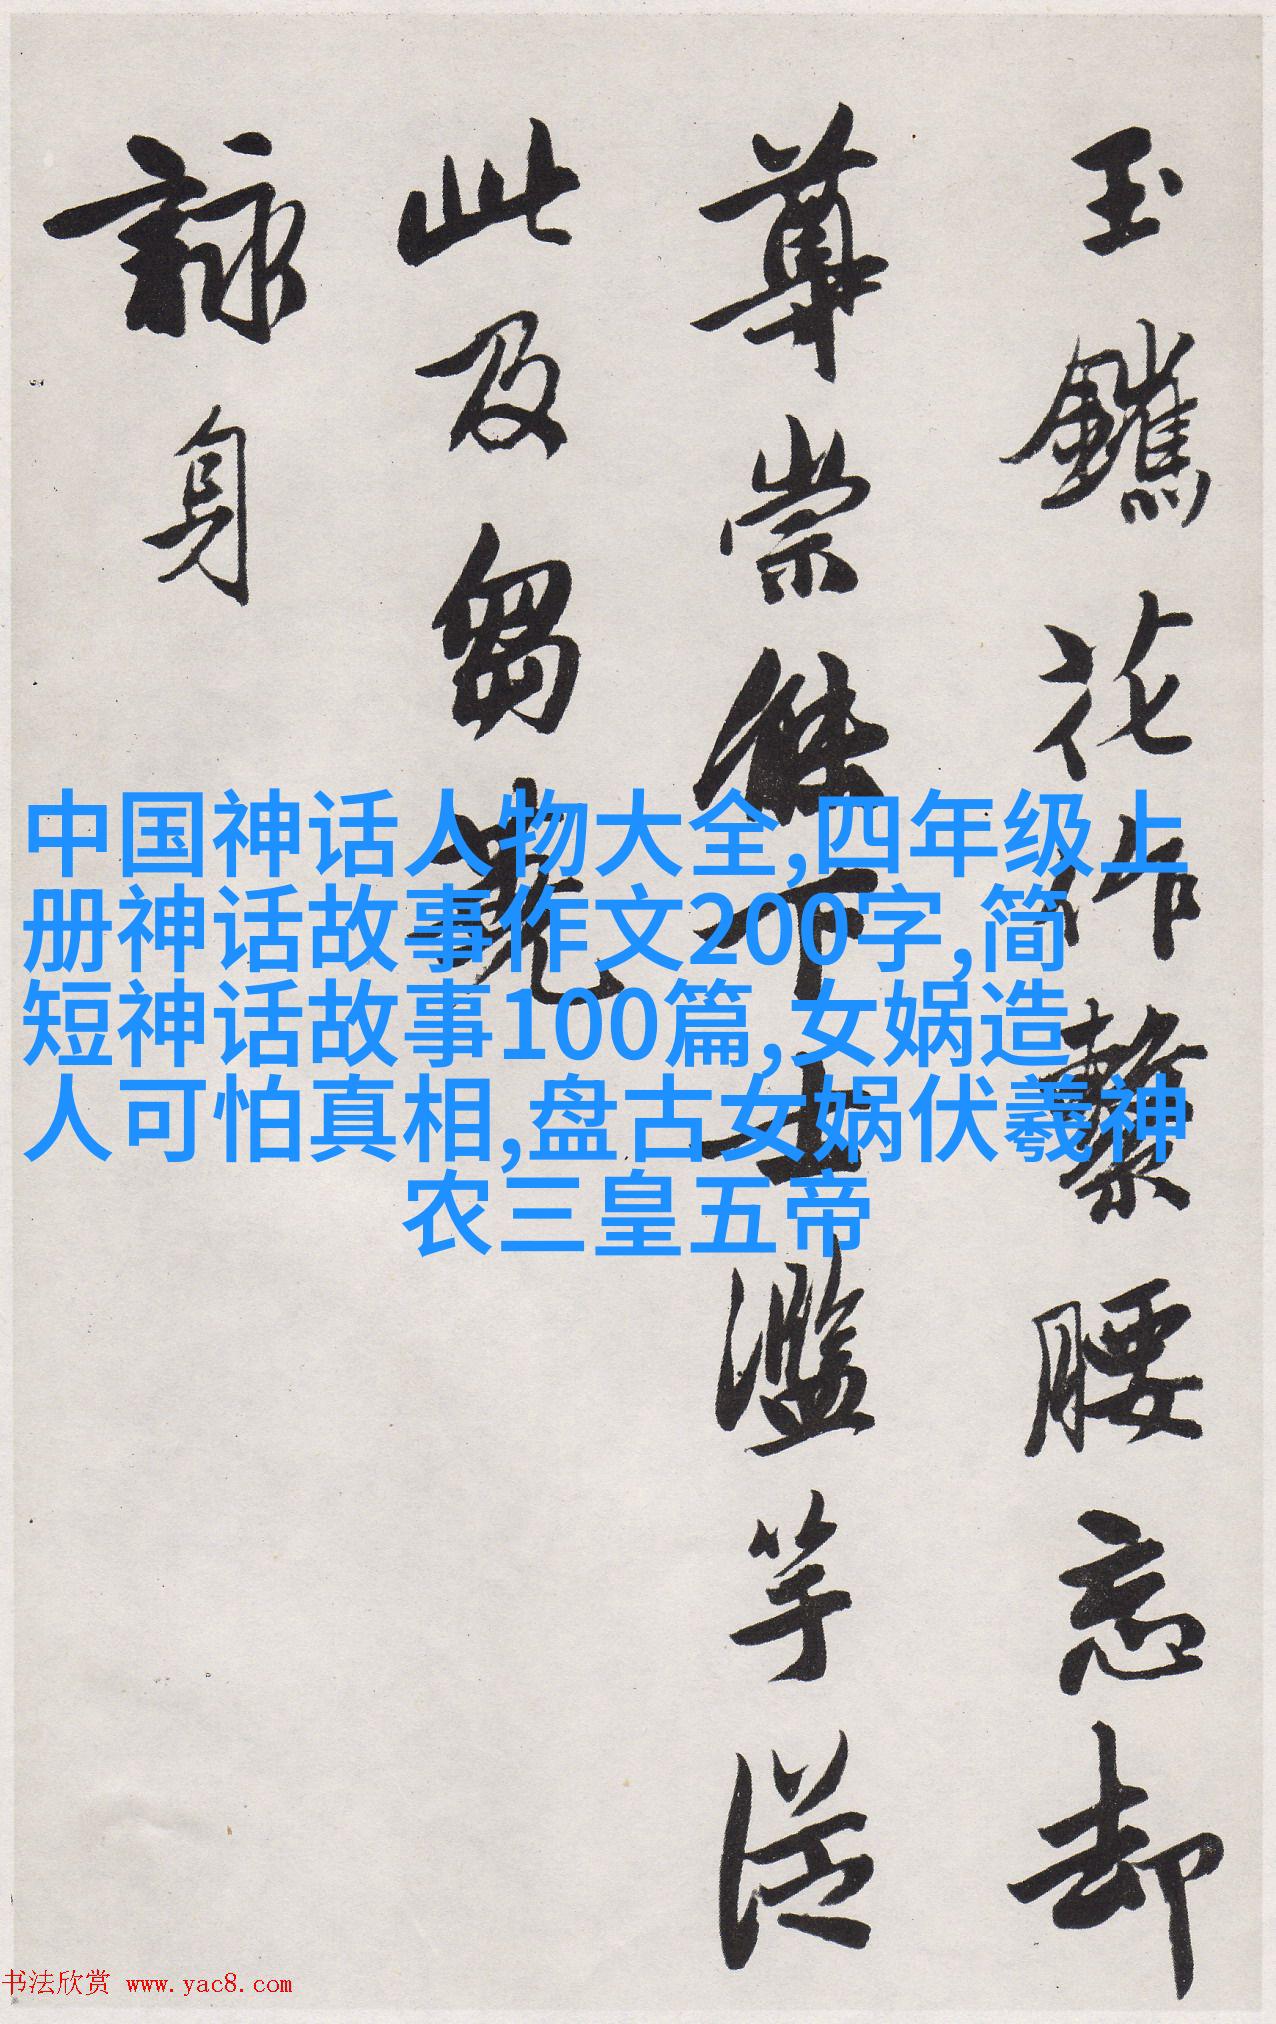 玉鑣花作繫腰忘却
尊崇條下士濫竽從
此及芻蕘
詠身
中国神话人物大全,四年级上
册神话故事作文200字,简
短神话故事100篇,女娲造
人可怕真相,盘古女娲伏羲神
农三皇五帝
书法欣赏 www.yac8.com